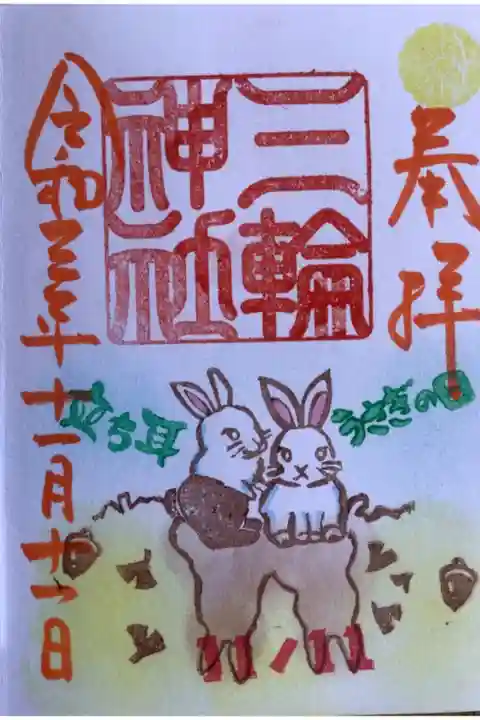 奉拝
三輪神社
うさぎの日
立ち耳
令和三年十一月十一日
11/11